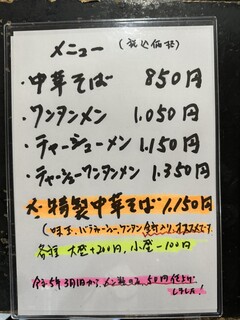 メニュー (税込価格)
・中華そば 850円
・ワンタンメン 1.050円
・チャーシューメン 1.150円
・チャーシューワンタンメン 1.350円
☆特製中華そば 1.150円
(味玉、バラチャーシュー、ワンタン 入り)オススメです
各種 大盛+200円, 小盛-100円
令和5年3月1日から、メン類のみ、50円値上げ
しました!